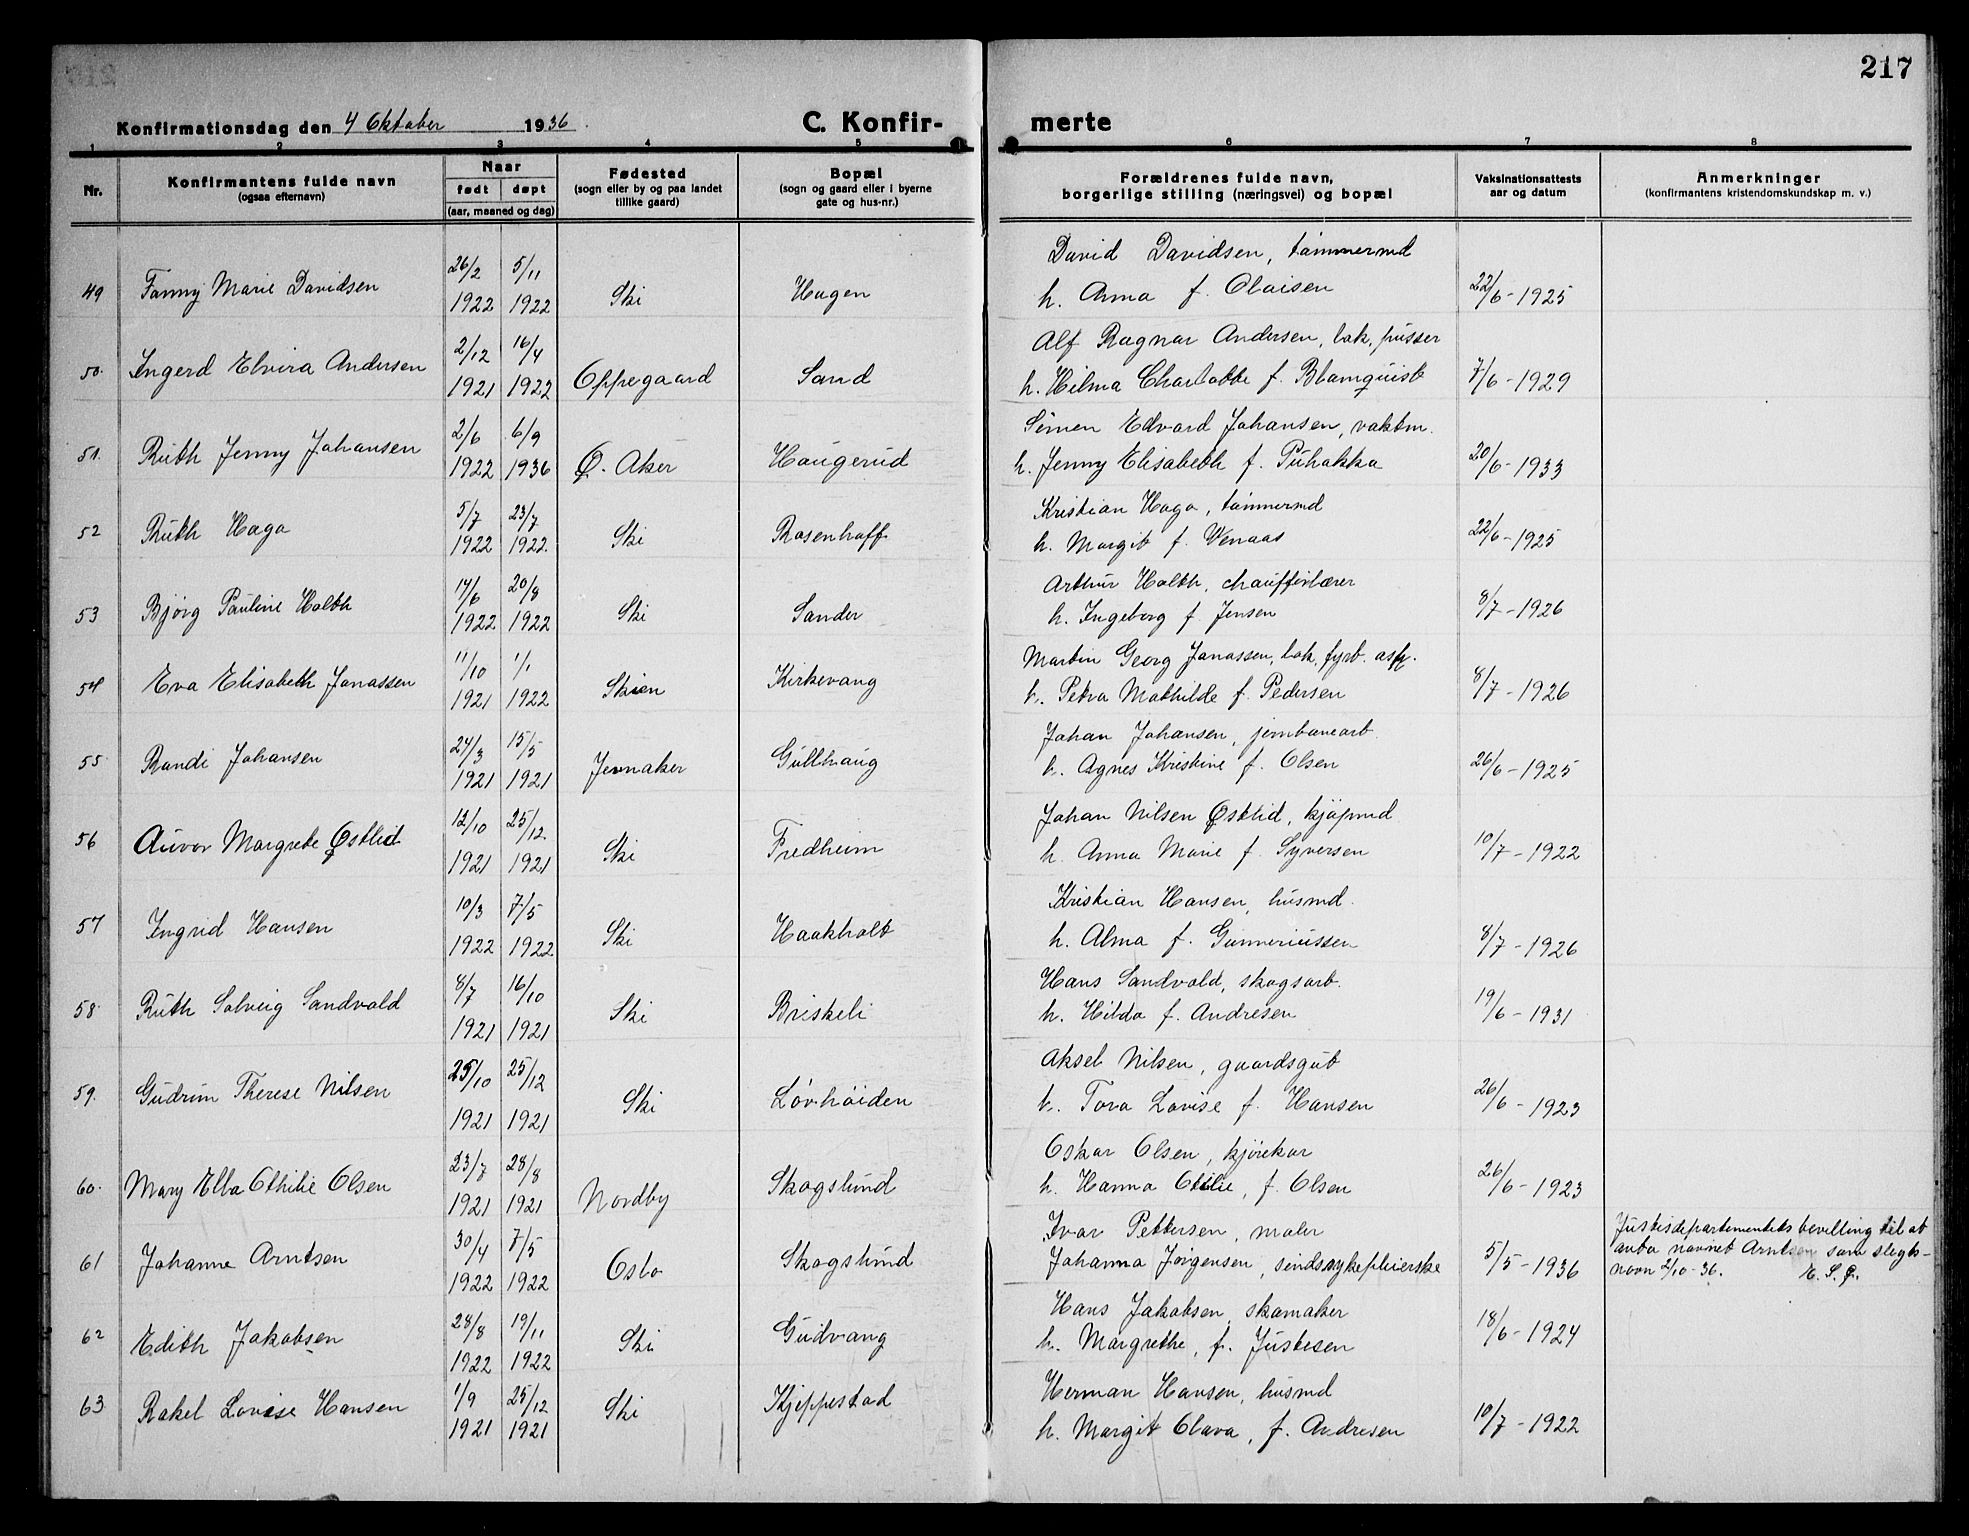 217
Konfirmationsdag den 4 Oktober 1936. C. Konfir- merte
1 2 3 4 5 6 7 8
Nr. Konfirmantens fulde navn (ogsaa efternavn) Naar født døpt (aar, maaned og dag) Fødested (sogn eller by og paa landet tillike gaard) Bopæl (sogn og gaard eller i byerne gate og hus-nr.) Forældrenes fulde navn, borgerlige stilling (næringsvei) og bopæl Vaksinationsattests aar og datum Anmerkninger (konfirmantens kristendomskundskap m. v.)
David Davidsen, tømmermd
49 Fanny Marie Davidsen 26/2 1922 5/11 1922 Ski Hagen h. Anna f. Olaisen 22/6-1925
Alf Ragnar Andersen, lok. pusser
50. Ingerd Elvira Andersen 2/12 1921 16/4 1922 Oppegaard Sand h. Hilma Charlotte f. Blomquist 7/6-1929
Simen Edvard Johansen, vaktm.
51. Ruth Jenny Johansen 2/6 1922 6/9 1936 Ø. Aker Haugerud h. Jenny Elisabeth f. Puhakka 20/6-1933
Kristian Haga, tømmermd
52 Ruth Haga 5/7 1922 23/7 1922. Ski Rosenhoff h. Margit f. Venaas 22/6-1925
Arthur Holth, chaufførlærer
53 Bjørg Pauline Holth 14/6 1922 20/8 1922 Ski Sander h. Ingeborg f. Jensen 8/7-1926
Martin Georg Jonassen, lok. fyrb. asp.
54 Eva Elisabeth Jonassen 11/10 1921 1/1 1922 Skien Kirkevang h. Petra Mathilde f. Pedersen 8/7-1926
Johan Johansen, jernbanearb.
55 Randi Johansen 24/3 1921 15/5 1921 Jevnaker Gullhaug h. Agnes Kristine f. Olsen 26/6-1925
Johan Nilsen Østlid, kjøpmd
56 Auvor Margrete Østlid 12/10 1921 25/12. 1921 Ski Fredheim h. Anna Marie f. Syversen 10/7-1922
Kristian Hansen, husmd.
57 Ingrid Hansen 10/3 1922 7/5 1922 Ski Haakholt h. Alma f. Gunneriussen 8/7-1926
Hans Sandvold, skogsarb.
58 Ruth Solveig Sandvold 8/7 1921 16/10 1921 Ski Briskeli h. Hilda f. Andresen 19/6-1931
Aksel Nilsen, gaardsgut
59. Gudrun Therese Nilsen 25/10 1921 25/12 1921 Ski Løvhøiden h. Tora Lovise f. Hansen 26/6-1923
Oskar Olsen, kjørekar
60. Mary Ella Othilie Olsen 23/7 1921 28/8 1921 Nordby Skogslund h. Hanna Otilie, f. Olsen 26/6-1923
Ivar Pettersen, maler
61 Johanne Arntsen 30/4 1922 7/5 1922 Oslo Skogslund Johanna Jørgensen, sindssykepleierske 5/5-1936 Justisdepartementets bevilling til at
anta navnet Arntsen som slegts-
navn 2/10-36. K. S. Ø.
Hans Jakobsen, skomaker
62 Edith Jakobsen 28/8 1922 19/11 1922 Ski Gudvang h. Margrethe, f. Justesen 18/6-1924
Herman Hansen, husmd
63 Rakel Lovise Hansen 1/9 1921 25/12 1921 Ski Kjeppestad h. Margit Olava, f. Andresen 10/7-1922